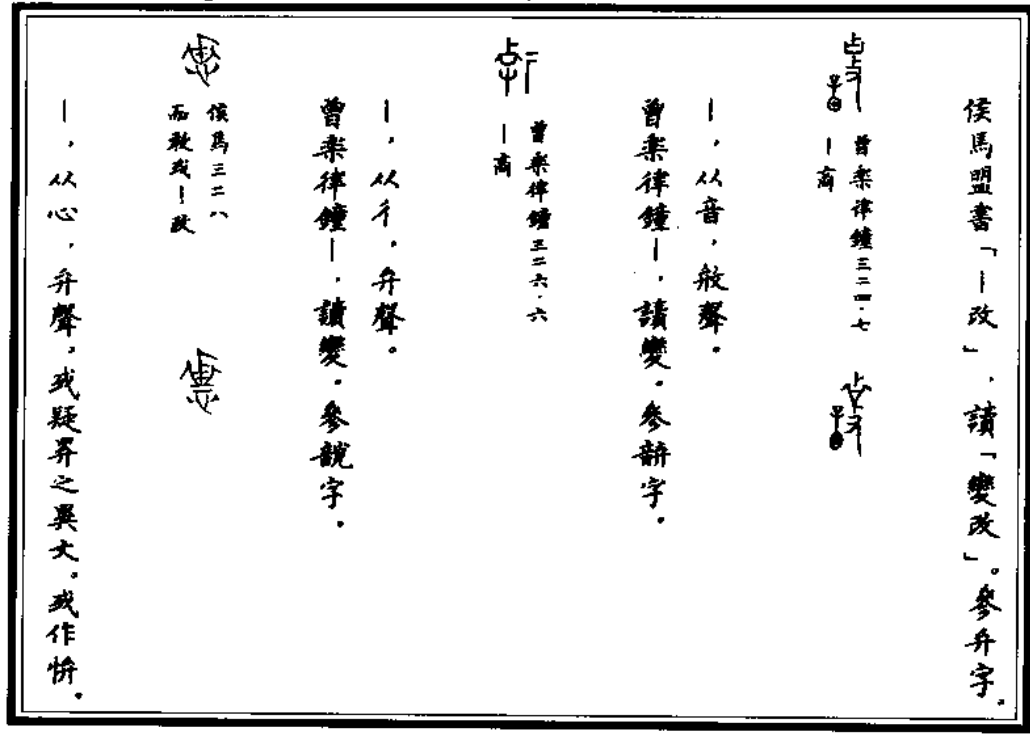 侯馬盟書「｜改」，讀「變改」。參弁字。
曾樂律鐘三二四·七
｜商
｜，从音，㪇聲。
曾樂律鐘｜，讀變。參䪻字。
曾樂律鐘三二六·六
｜商
｜，从彳，弁聲。
曾樂律鐘｜，讀變。參字。
侯馬三二八
而敢或｜改
｜，从心，弁聲，或疑弁之異文。或作㤓。